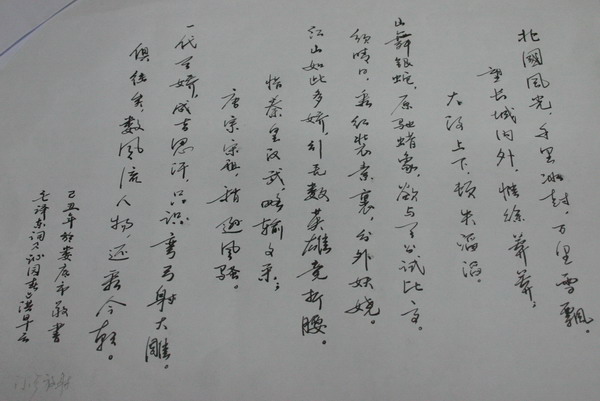 北國風光，千里冰封，万里雪飄。
望长城内外，惟馀莽莽；
大河上下，顿失滔滔。
山舞银蛇，原驰蜡象，欲与天公试比高。
须晴日，看红装素裹，分外妖娆。
江山如此多娇，引无数英雄竞折腰。
惜秦皇汉武，略输文采；
唐宗宋祖，稍逊风骚。
一代天骄，成吉思汗，只识弯弓射大雕。
俱往矣，数風流人物，还看今朝。
己丑年於娄底市敬書
毛泽东词沁园春